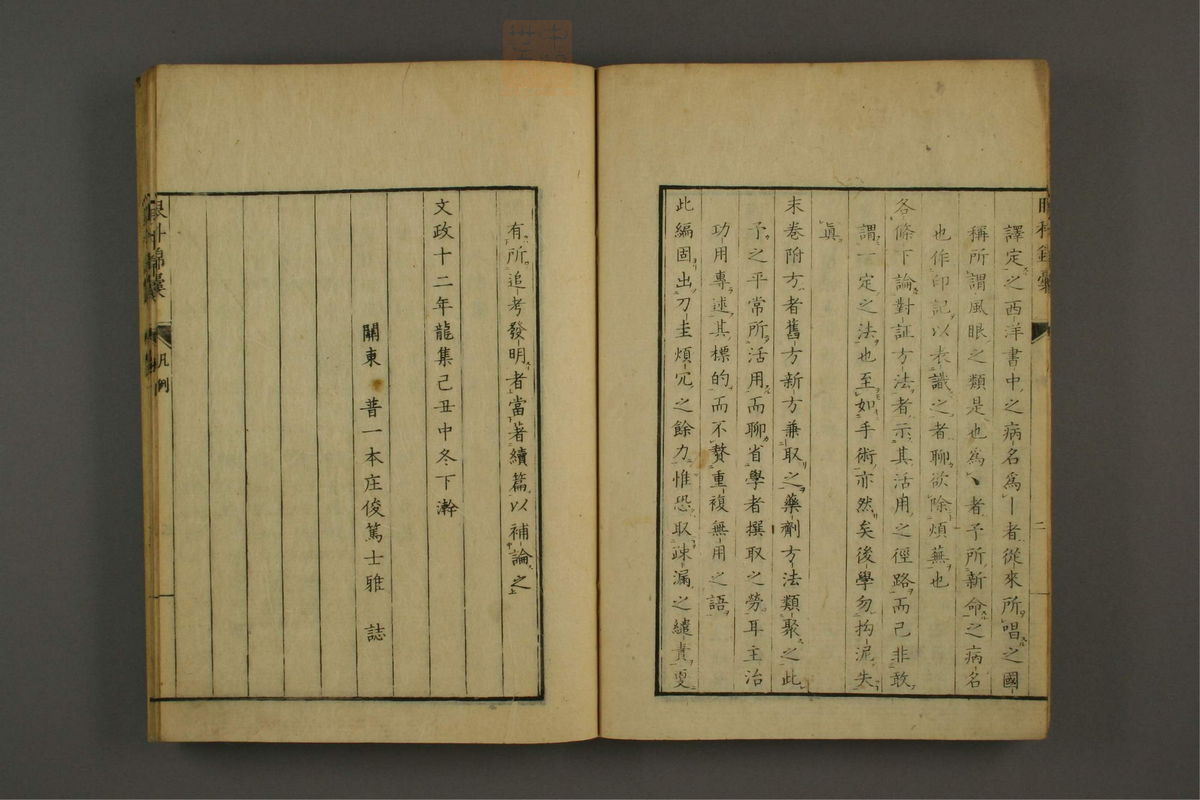 譯定之西洋書中之病名爲｜者從來所唱之國
稱所謂風眼之類是也爲、者予所新命之病名
也作印記以表識之者聊欲除煩蕪也
各條下論對証方法者示其活用之徑路而己非敢
謂一定之法也至如手術亦然矣後學勿拘泥失
眞
末卷附方者舊方新方兼取之藥劑方法類聚之此
予之平常所活用而聊省學者撰取之勞耳主治
功用專述其標的而不贅重複無用之語
此編固出刀圭煩冗之餘力惟恐取疎漏之縫責更
二
有所追考發明者當著續篇以補論之
文政十二年龍集己丑中冬下澣
關東 普一本庄俊篤士雅 誌
眼科錦囊
凡例